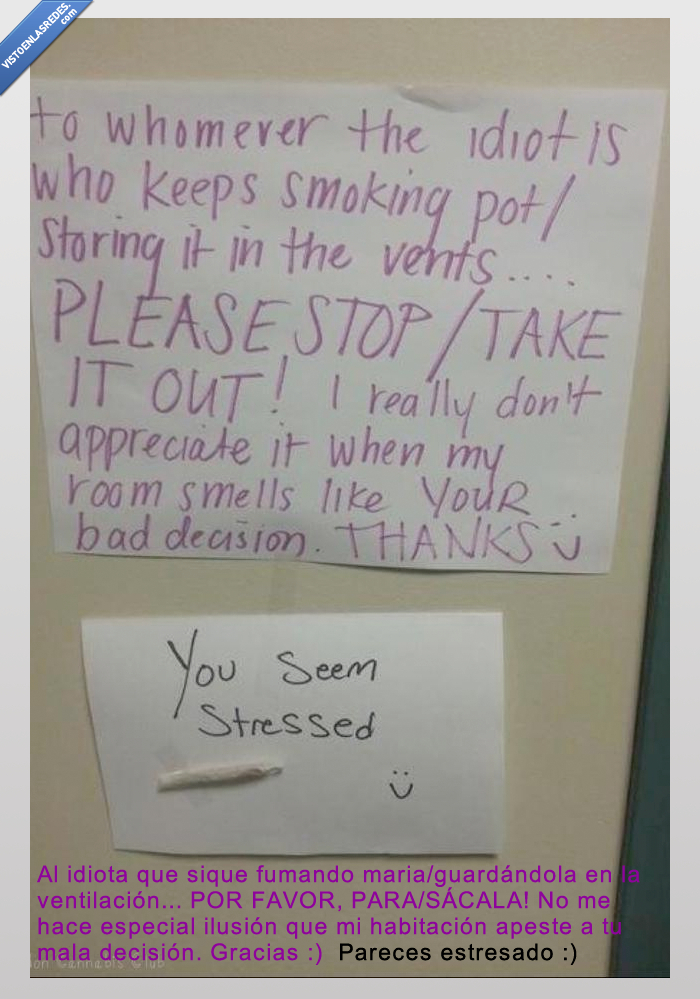 VISTOENLASREDES.
com
to whomever the idiot is
who keeps smoking pot/
storing it in the vents....
PLEASE STOP/TAKE
IT OUT! I really don't
appreciate it when my
room smells like YOUR
bad decision. THANKS :)
You Seem
Stressed
:)
Al idiota que sique fumando maria/guardándola en la
ventilación... POR FAVOR, PARA/SÁCALA! No me
hace especial ilusión que mi habitación apeste a tu
mala decisión. Gracias :) Pareces estresado :)
Cannabis Club